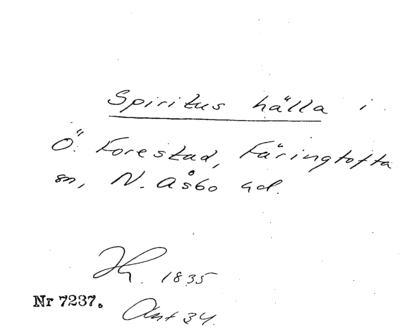 Spiritus hälla i
Ö. Forestad, Färingtofta
sn, N. Åsbo hd.
H. 1835
Nr 7237. Ant 34.